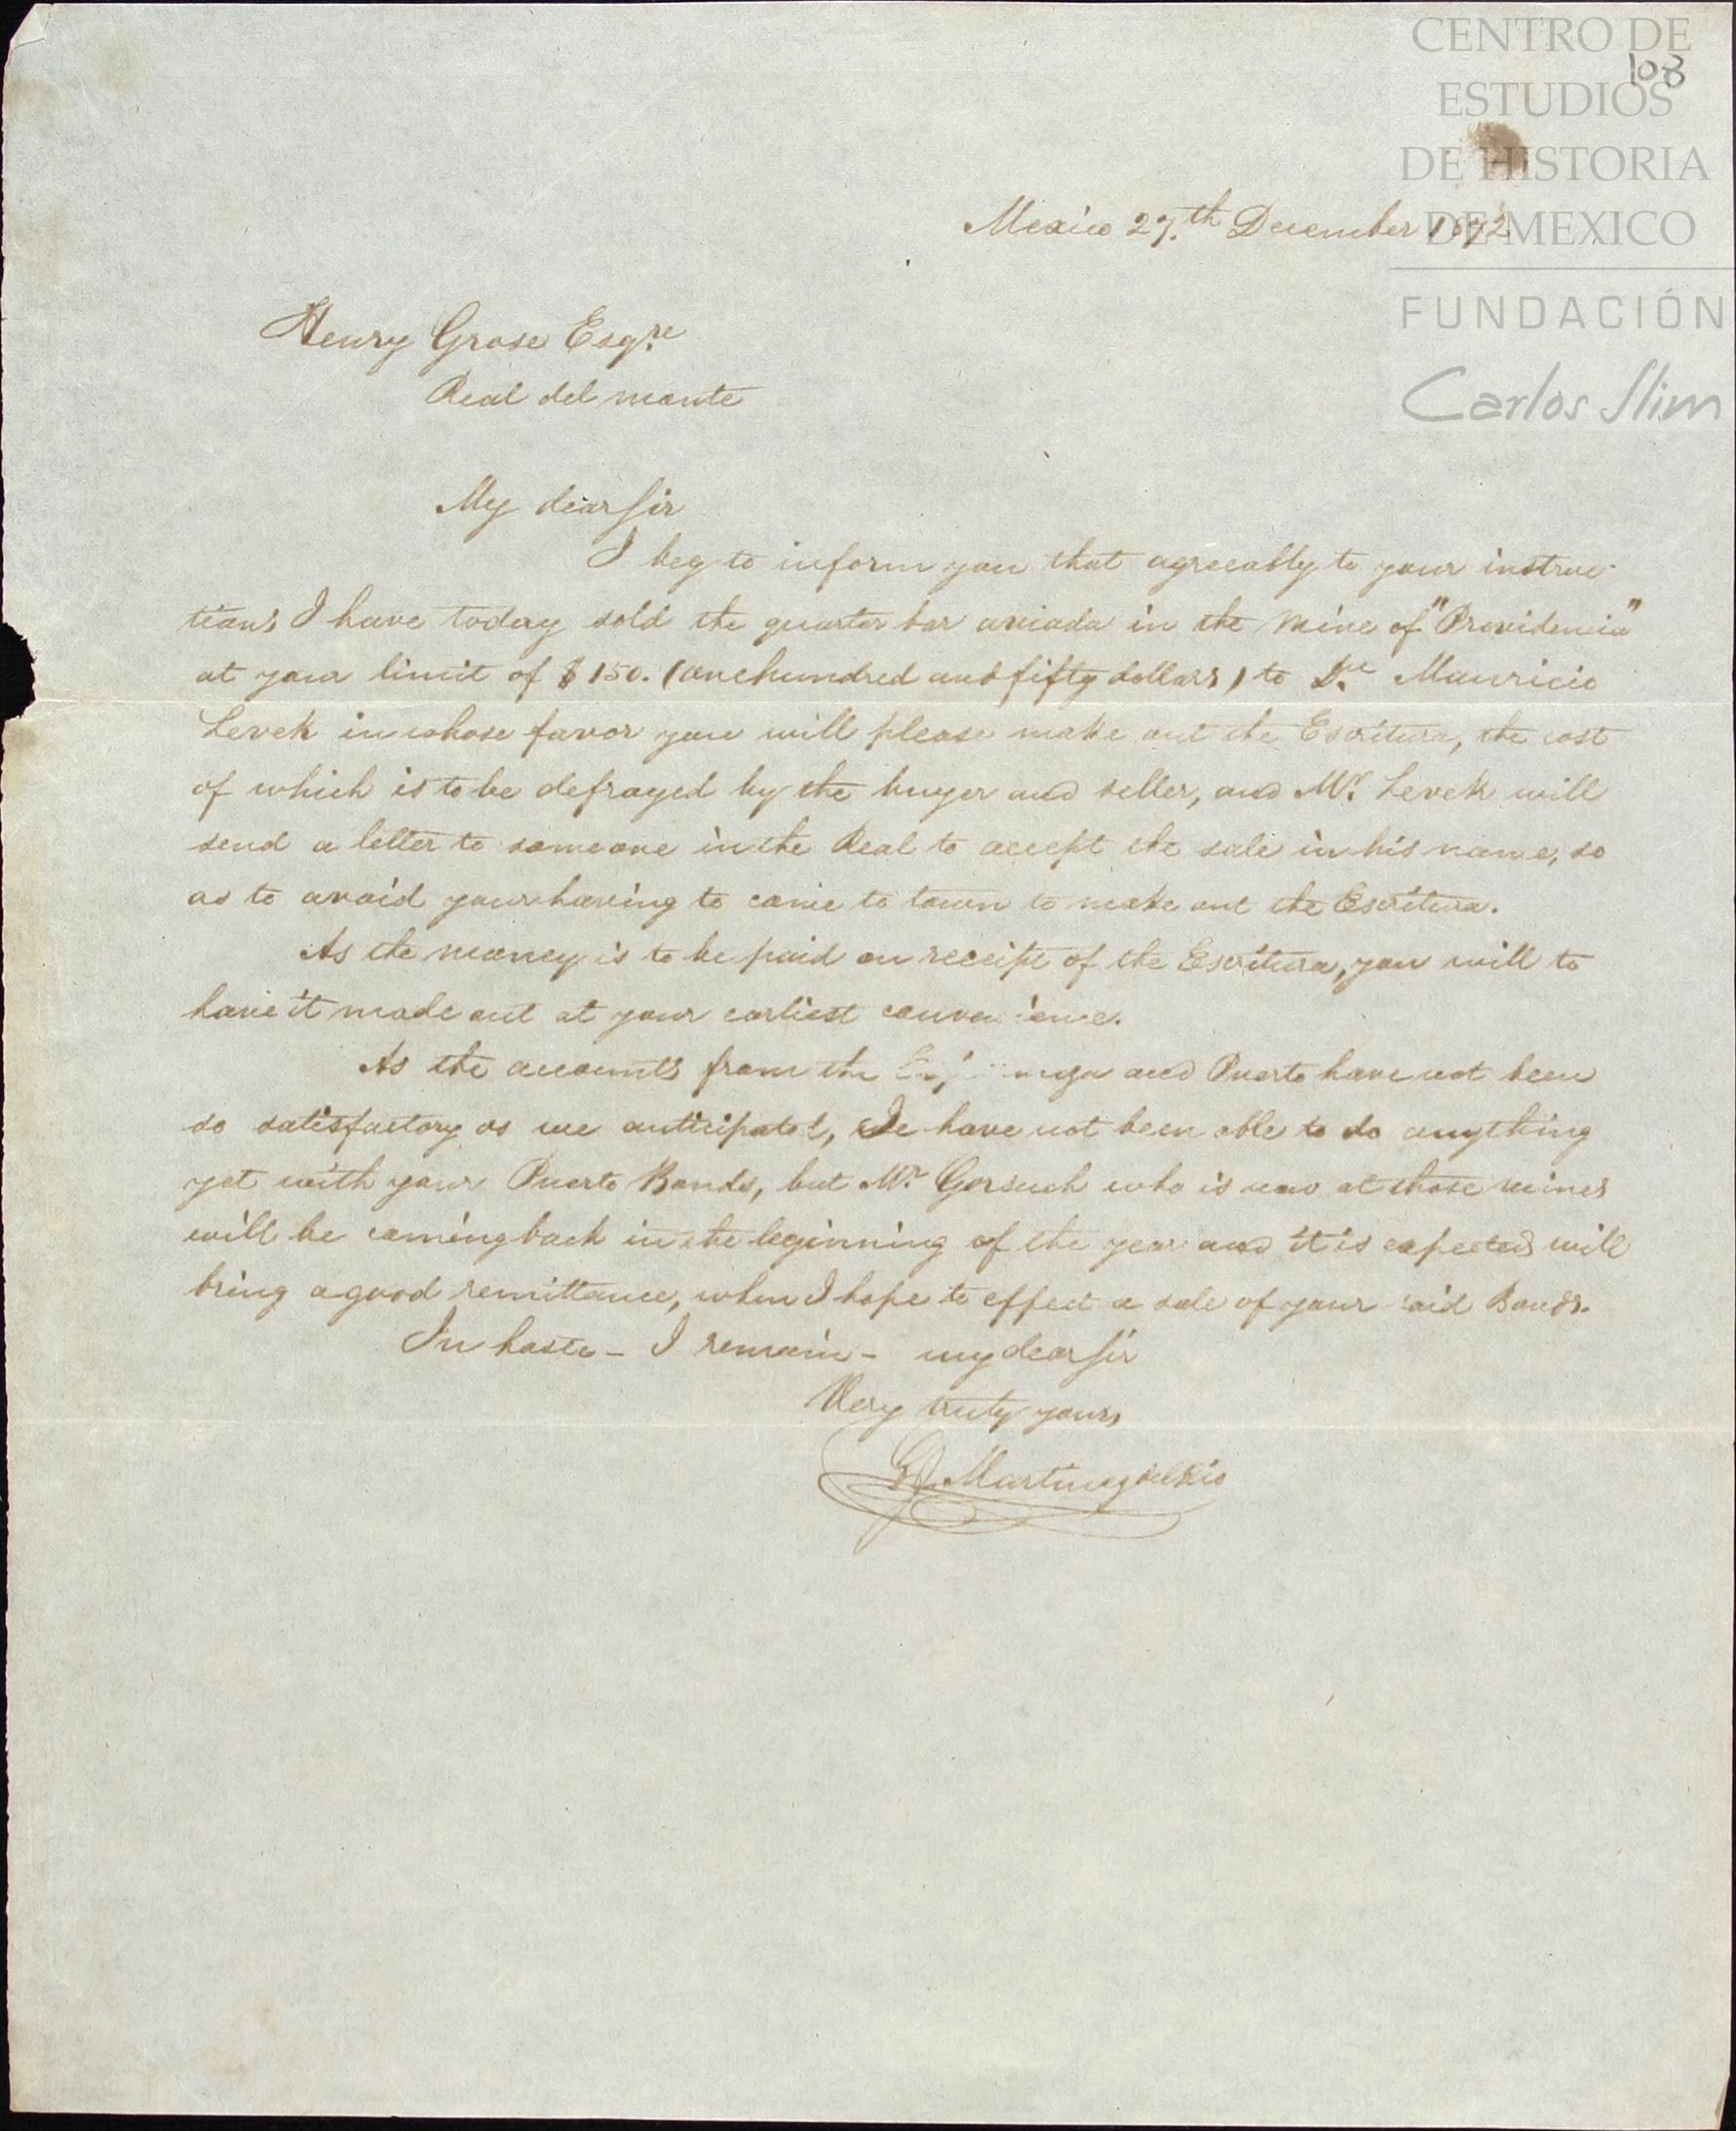 CENTRO DE
ESTUDIOS
DE HISTORIA
DE MEXICO
FUNDACIÓN
Carlos Slim
108
Mexico 27.th December 1872
Henry Grose Esqre
Real del monte
My dear Sir
I beg to inform you that agreeably to your instruc-
tions I have today sold the quarter bar aviada in the mine of "Providencia"
at your limit of $150. (one hundred and fifty dollars) to Dn Mauricio
Levek in whose favor you will please make out the Escritura, the cost
of which is to be defrayed by the buyer and seller, and Mr. Levek will
send a letter to someone in the Real to accept the sale in his name, so
as to avoid your having to come to town to make out the Escritura.
As the money is to be paid on receipt of the Escritura, you will to
have it made out at your earliest convenience.
As the accounts from the and Puerto have not been
so satisfactory as we anticipated, We have not been able to do anything
yet with your Puerto Bonds, but Mr. Gorsuch who is now at those mines
will be coming back in the beginning of the year and it is expected will
bring a good remittance, when I hope to effect a sale of your said Bonds.
In haste - I remain - my dear Sir
Very truly yours
G. Martinez del Rio